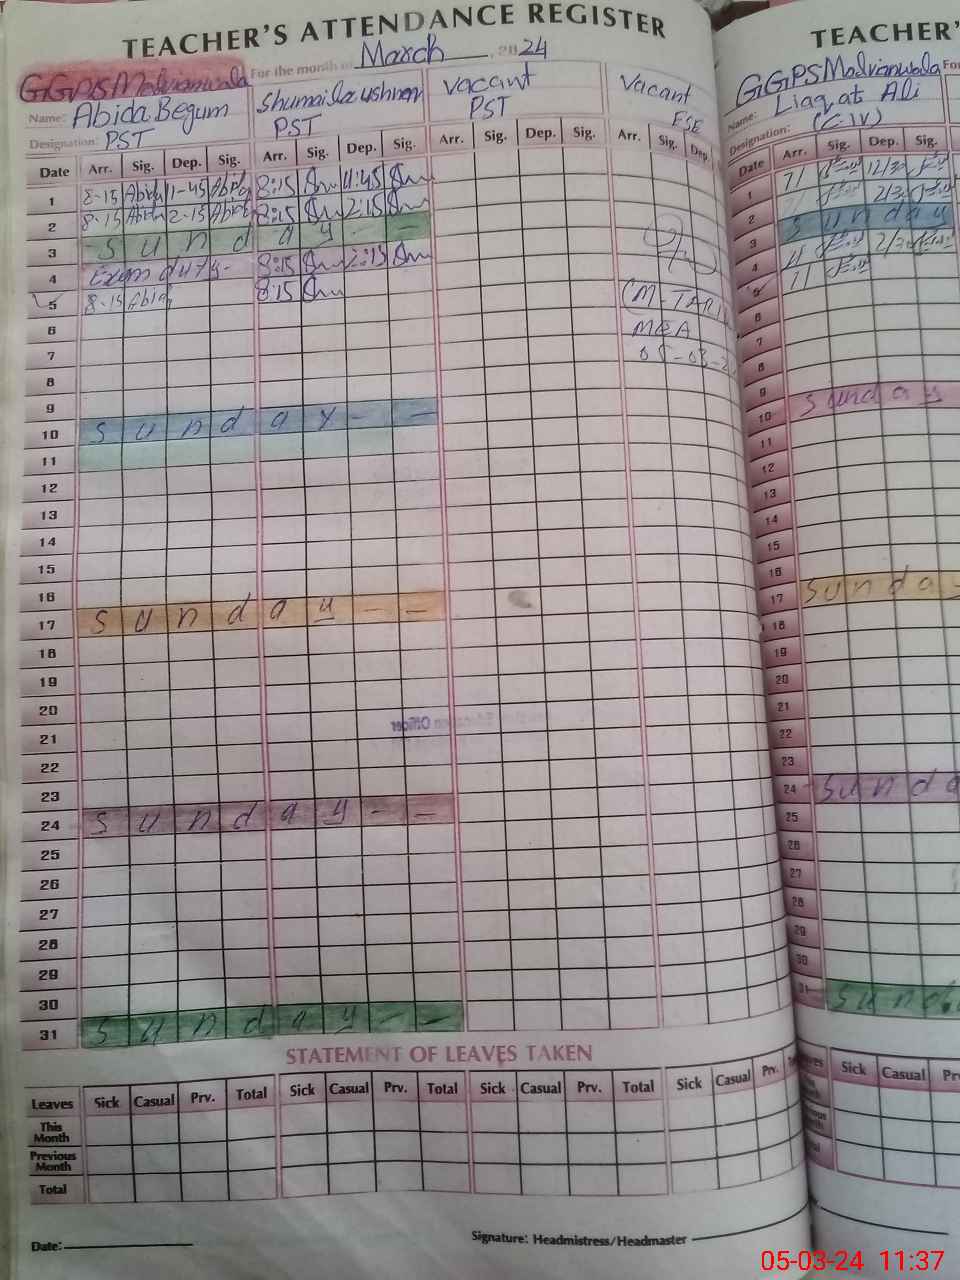 TEACHER'S ATTENDANCE REGISTER
For the month of March, 2024
GGPS Malvianwala
Name: Abida Begum
Designation: PST
Vacant
PST
Vacant
ESE
Date Arr. Sig. Dep. Sig. Arr. Sig. Dep. Sig. Arr. Sig. Dep. Sig. Arr. Sig. Dep.
1 8-15 Abida 11-45 Abida 8:15 11:45
2 8-15 Abida 12-15 Abida 8:15 12:15
3 - S u n d a y - -
4 Exam duty- 8:15 12:15
5 8-15 Abida 8:15
6
7
8
9
10 S u n d a y - -
11
12
13
14
15
16
17 S u n d a y - -
18
19
20
21
22
23
24 S u n d a y - -
25
26
27
28
29
30
31 S u n d a y - -
MEA
STATEMENT OF LEAVES TAKEN
Leaves Sick Casual Prv. Total Sick Casual Prv. Total Sick Casual Prv. Total Sick Casual Prv.
This Month
Previous Month
Total
Date:
Signature: Headmistress/Headmaster
TEACHER'
GGPS Malvianwala For
Name: Liaqat Ali
Designation: (C IV)
Date Arr. Sig. Dep. Sig.
1 7/ 12/30
2 7/ 12/30
3 S u n d a y
4
5 7/
6
7
8
9
10 S u n d a y
11
12
13
14
15
16
17 S u n d a
18
19
20
21
22
23
24 S u n d a
25
26
27
28
29
30
31 S u n d a
Sick Casual
05-03-24 11:37